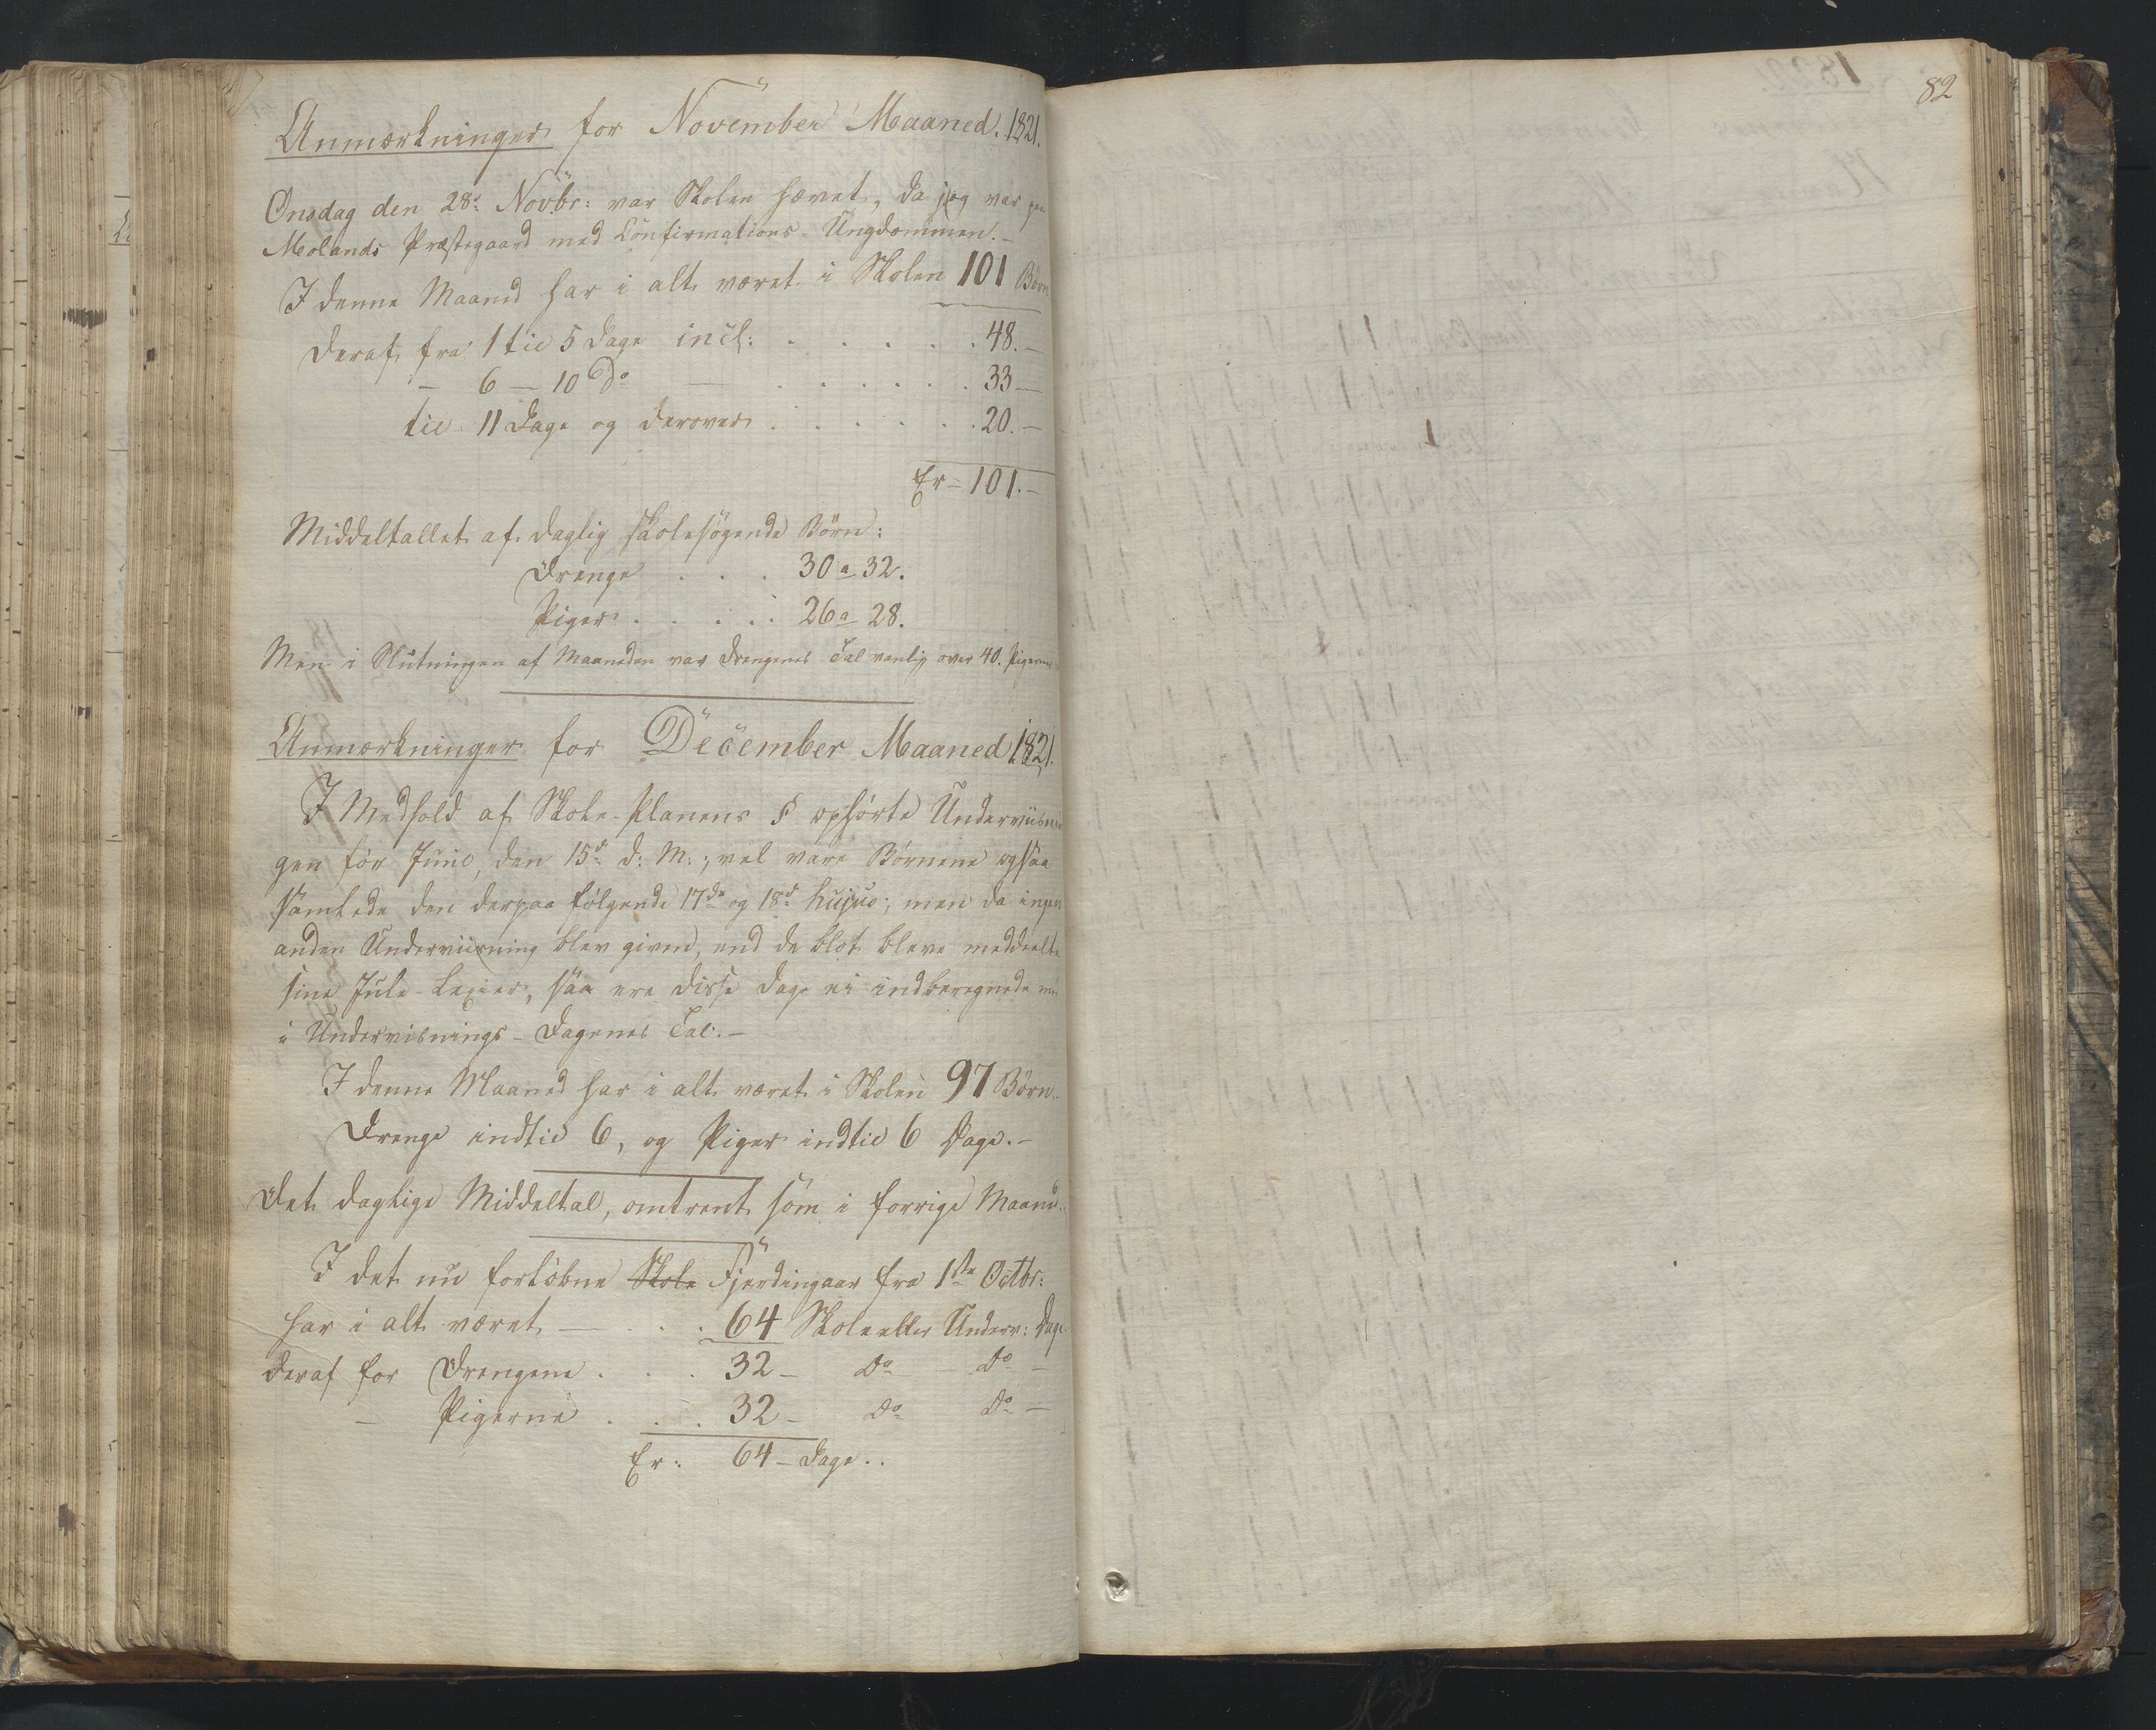 Anmærkninger for November Maaned. 1821.
Onsdag den 28d: Novbr: var Skolen hævet, da jeg var paa
Molands Præstegaard med Confirmations-Ungdommen.-
I denne Maaned har i alt været i Skolen 101 Børn
Deraf fra 1 til 5 Dage incl: . . . . . . 48.-
- 6 - 10 Do - . . . . . . 33-
til 11 Dage og derover . . . . . . 20.-
Er - 101.-
Middeltallet af daglig skolesøgende Børn:
Drenge . . . 30 a 32.
Piger . . . . . 26 a 28.
Men i Slutningen af Maaneden var Drengenes Tal venlig over 40. Pigernes
Anmærkninger for December Maaned 1821.
I Medhold af Skole-Planens § ophørte Underviisnin
gen før Juul, den 15d: d: M:, vel vare Børnene ogsaa
samlede den derpaa følgende 17de og 18d: hujus; men da ingen
anden Underviisning blev given, end de blot bleve meddeelte
sine Jule-Lexier, saa ere disse Dage ei indberegnede
i Undervisnings-Dagenes Tal.-
I denne Maaned har i alt været i Skolen 97 Børn.
Drenge indtil 6, og Piger indtil 6 Dage.-
Det daglige Middeltal, omtrent som i forrige Maaned.
I det nu forløbne Skole Fjerdingaar fra 1ste Octbr:
har i alt været - . . 64 Skole eller Underv: Dage
deraf for Drengene . . . 32 - Do Do -
- Pigerne . . . 32 - Do Do -
Er: 64 - Dage..
82